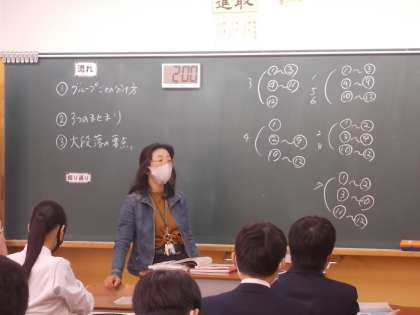 進取
流れ
① グループごとの分け方
② 3つのまとまり
③ 大段落の要点。
振り返り
200
3
① 〜 ③
④ 〜 ⑪
⑫
4
①
② 〜 ⑨
⑩ 〜 ⑫
1
5
6
① 〜 ③
④ 〜 ⑨
⑩ 〜 ⑫
2
8
① 〜 ②
③ 〜 ⑨
⑩ 〜 ⑫
7
① 〜 ②
③ 〜 ⑩
⑪ 〜 ⑫